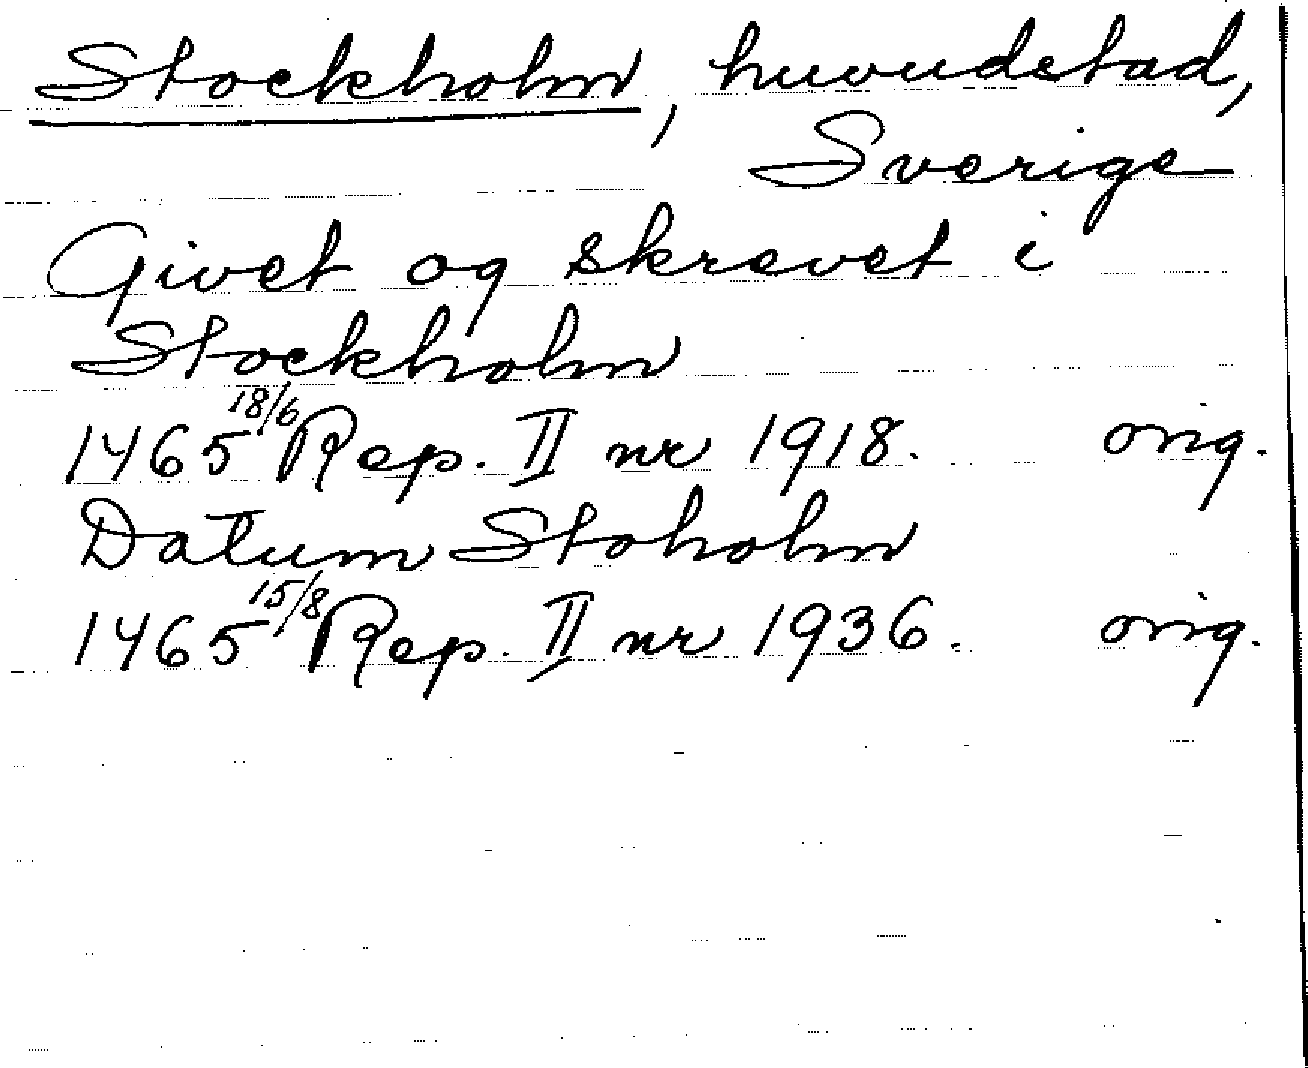 Stockholm, huvudstad,
Sverige
Givet og skrevet i
Stockholm
1465 18/6 Rep. II nr 1918. orig.
Datum Stoholm
1465 15/8 Rep. II nr 1936. orig.